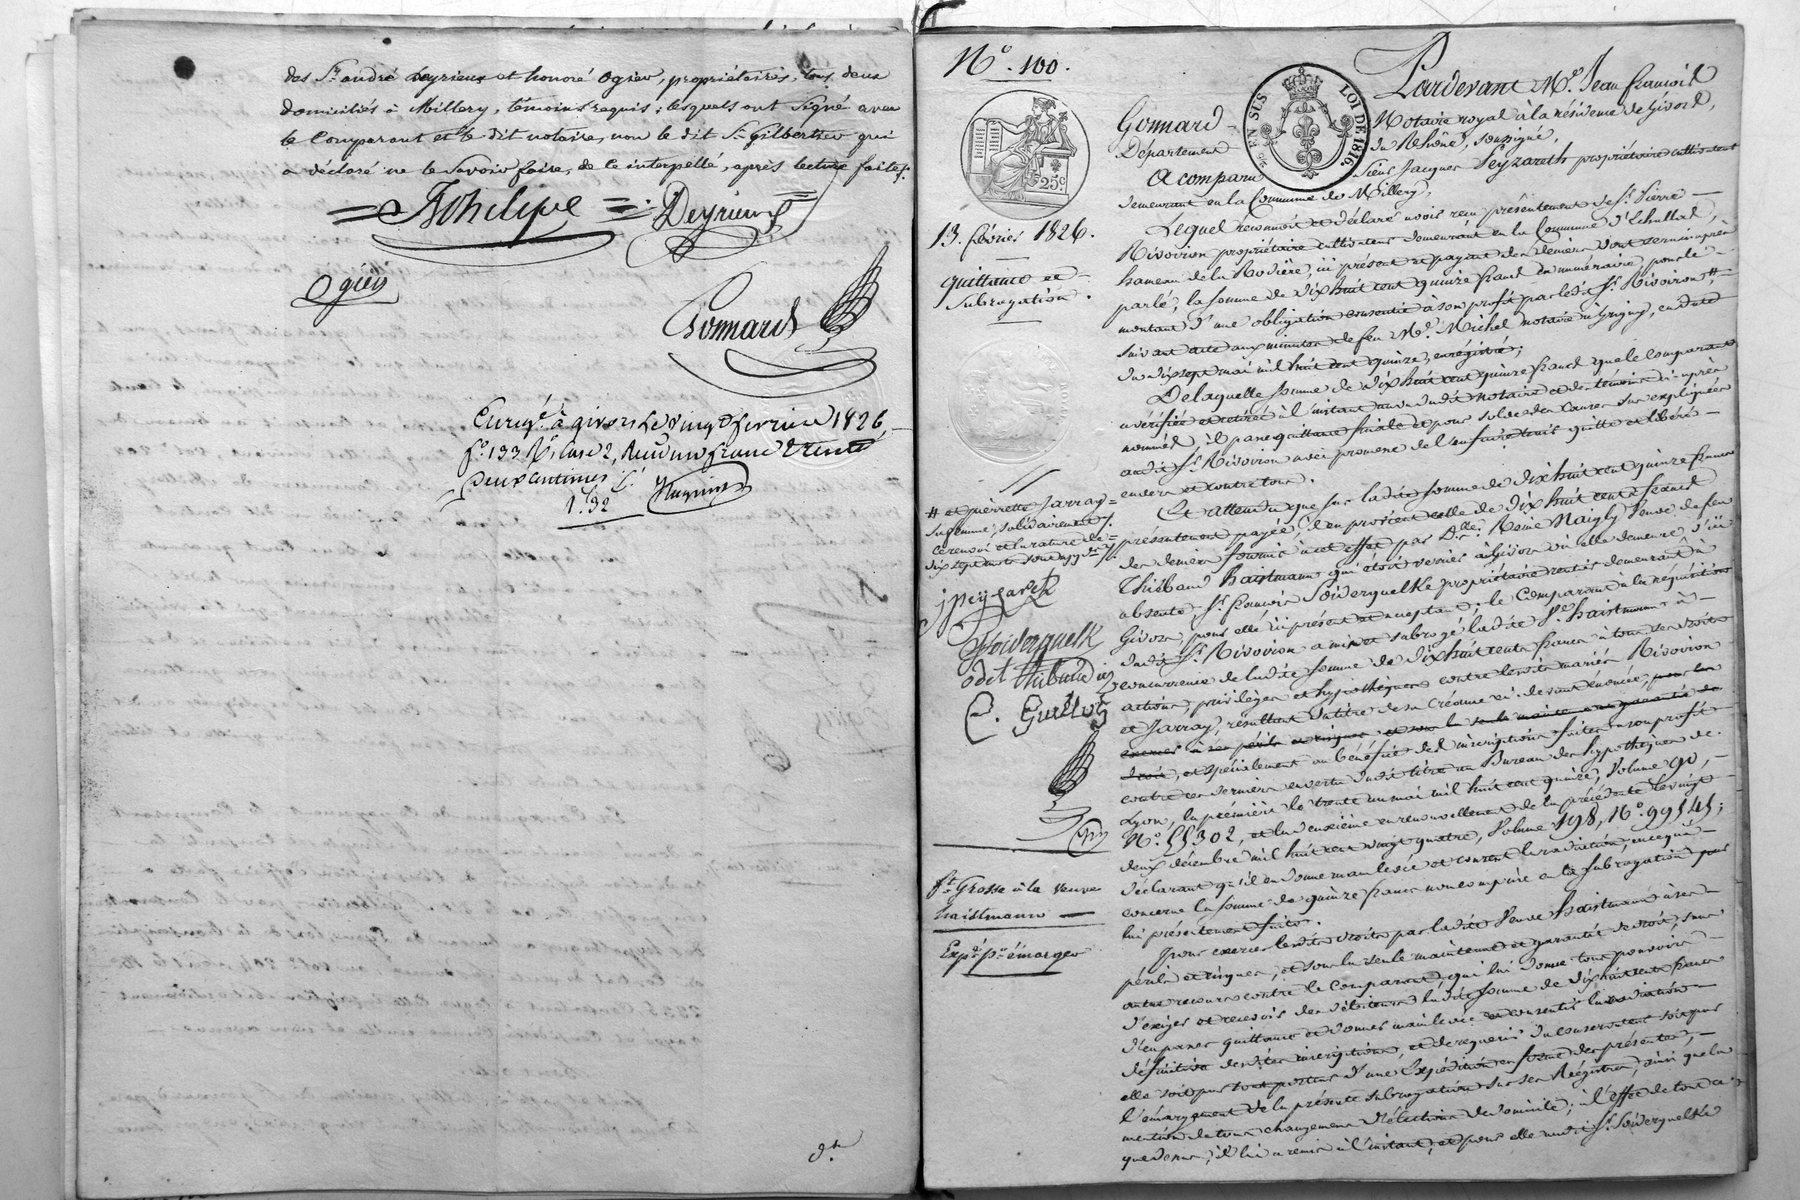 des Srs andré Deyrieux et honoré Ogier, propriétaires, tous deux
domiciliés à Millery, témoins requis; lesquels ont signé avec
le Comparant et le dit notaire, non le dit Sr Gilbert qui
a déclaré ne le savoir faire, de ce interpellé, après lecture faite.
Deyrieux
Ogier
Gonnard
Enregé à givors le vingt février 1826,
fo 133 Ro, Case 2, Reçu un franc trente
deux Centimes
1f. 32
No. 100.
25c
EN SUS
LOI DE 1816.
13. février 1826.
quittance et
subrogation.
# et pierrette Jarray
sa femme, solidairement
ce renvoi et la rature de
dix sept mots sont app
jpeyzareth
Soiderquelk
odet thibaudier
C. Guillot
ft. Grosse à la veuve
haistmann
Expé pr émarger
Pardevant Me. Jean francois
Gonnard Notaire royal à la résidence de Givors,
Département du Rhône, soussigné,
A comparu Sieur Jacques Peyzareth propriétaire cultivateur
demeurant en la Commune de Millery,
Lequel reconnoit et déclare avoir reçu présentement de Sr. Pierre
Rivoiron propriétaire cultivateur demeurant en la Commune d'Echallas,
hameau de la Rodière, ici présent et payant des deniers dont sera ci-après
parlé, la somme de dix huit cent quinze francs en numéraire, pour le
montant d'une obligation consentie à son profit par ledit Sr. Rivoiron #
suivant acte aux minutes de feu Me. Michel notaire à Grigny, en date
du dix sept mai mil huit cent quinze, enregistré;
De laquelle somme de dix huit cent quinze francs que le comparant
a vérifiée et retirée à l'instant au vu dudit notaire et des témoins ci-après
nommés, il passe quittance finale et pour solde des causes sus expliquées
audit Sr. Rivoiron avec promesse de l'en faire tenir quitte et libéré
envers et contre tous.
Et attendu que sur ladite somme de dix huit cent quinze francs
présentement payée, il en provient celle de dix huit cents francs
des deniers fournis à cet effet par Dlle. Reine Naigly Veuve de feu
Thiébaud haistmann qui étoit verrier à Givors où elle demeure, d'ici
absente, Sr. francois Soiderquelk propriétaire rentier demeurant à
Givors, pour elle ici présent et acceptant; le Comparant à la réquisition
dudit Sr. Rivoiron a mis et subrogé ladite Ve haistmann à
concurrence de ladite somme de dix huit cents francs à tous ses droits
actions, privilèges et hypothèques contre lesdits mariés Rivoiron
et Jarray, résultant du titre de sa Créance ci-devant énoncée, pour les
exercer à ses périls et risques et sous la seule maintenue et garantie de
droit, et spécialement au bénéfice des inscriptions faites à son profit
contre ces derniers en vertu dudit titre au Bureau des hypothèques de
Lyon, la première le trente un mai mil huit cent quinze, Volume 90,
No. 55302, et la deuxième en renouvellement de la précédente le vingt
deux décembre mil huit cent vingt quatre, Volume 198, No. 99545;
déclarant qu'il en donne mainlevée et consent la radiation, en ce qui
concerne la somme de quinze francs non comprise en la subrogation par
lui présentement faite.
Pour exercer lesdits droits par ladite Veuve haistmann à ses
périls et risques, et sous la seule maintenue et garantie de droit, sans
autre recours contre le Comparant, qui lui donne tout pouvoir
d'exiger et recevoir des débiteurs ladite somme de dix huit cents francs
d'en passer quittance et donner mainlevée et consentir la radiation
définitive desdites inscriptions, et de requérir du conservateur soit par
elle soit par tout porteur d'une Expédition en forme des présentes,
l'émargement de la présente subrogation sur ses Régistres, ainsi que la
mention de tous changemens d'élection de domicile; à l'effet de tout ce
que dessus, il lui a remis à l'instant, et pour elle audit Sr. Soiderquelk